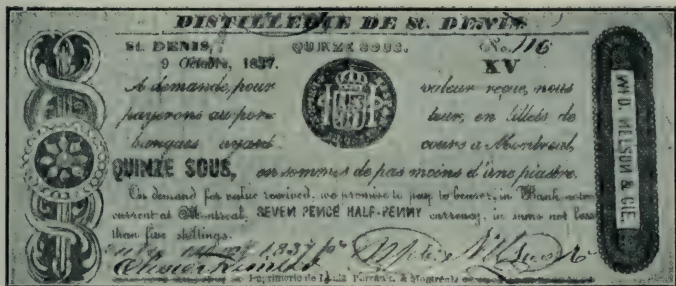 DISTILLERIE DE St. DENIS
St. DENIS, QUINZE SOUS. No. 116
9 Octobre, 1837. XV
A demande, pour valeur reçue, nous
payerons au porteur, en billets de
banques ayant cours à Montreal,
QUINZE SOUS, en sommes de pas moins d'une piastre.
On demand for value received, we promise to pay to bearer, in Bank notes
current at Montreal, SEVEN PENCE HALF-PENNY currency, in sums not less
than five shillings.
1837
Imprimerie de Louis Perrault, à Montreal
WD. NELSON & CIE.